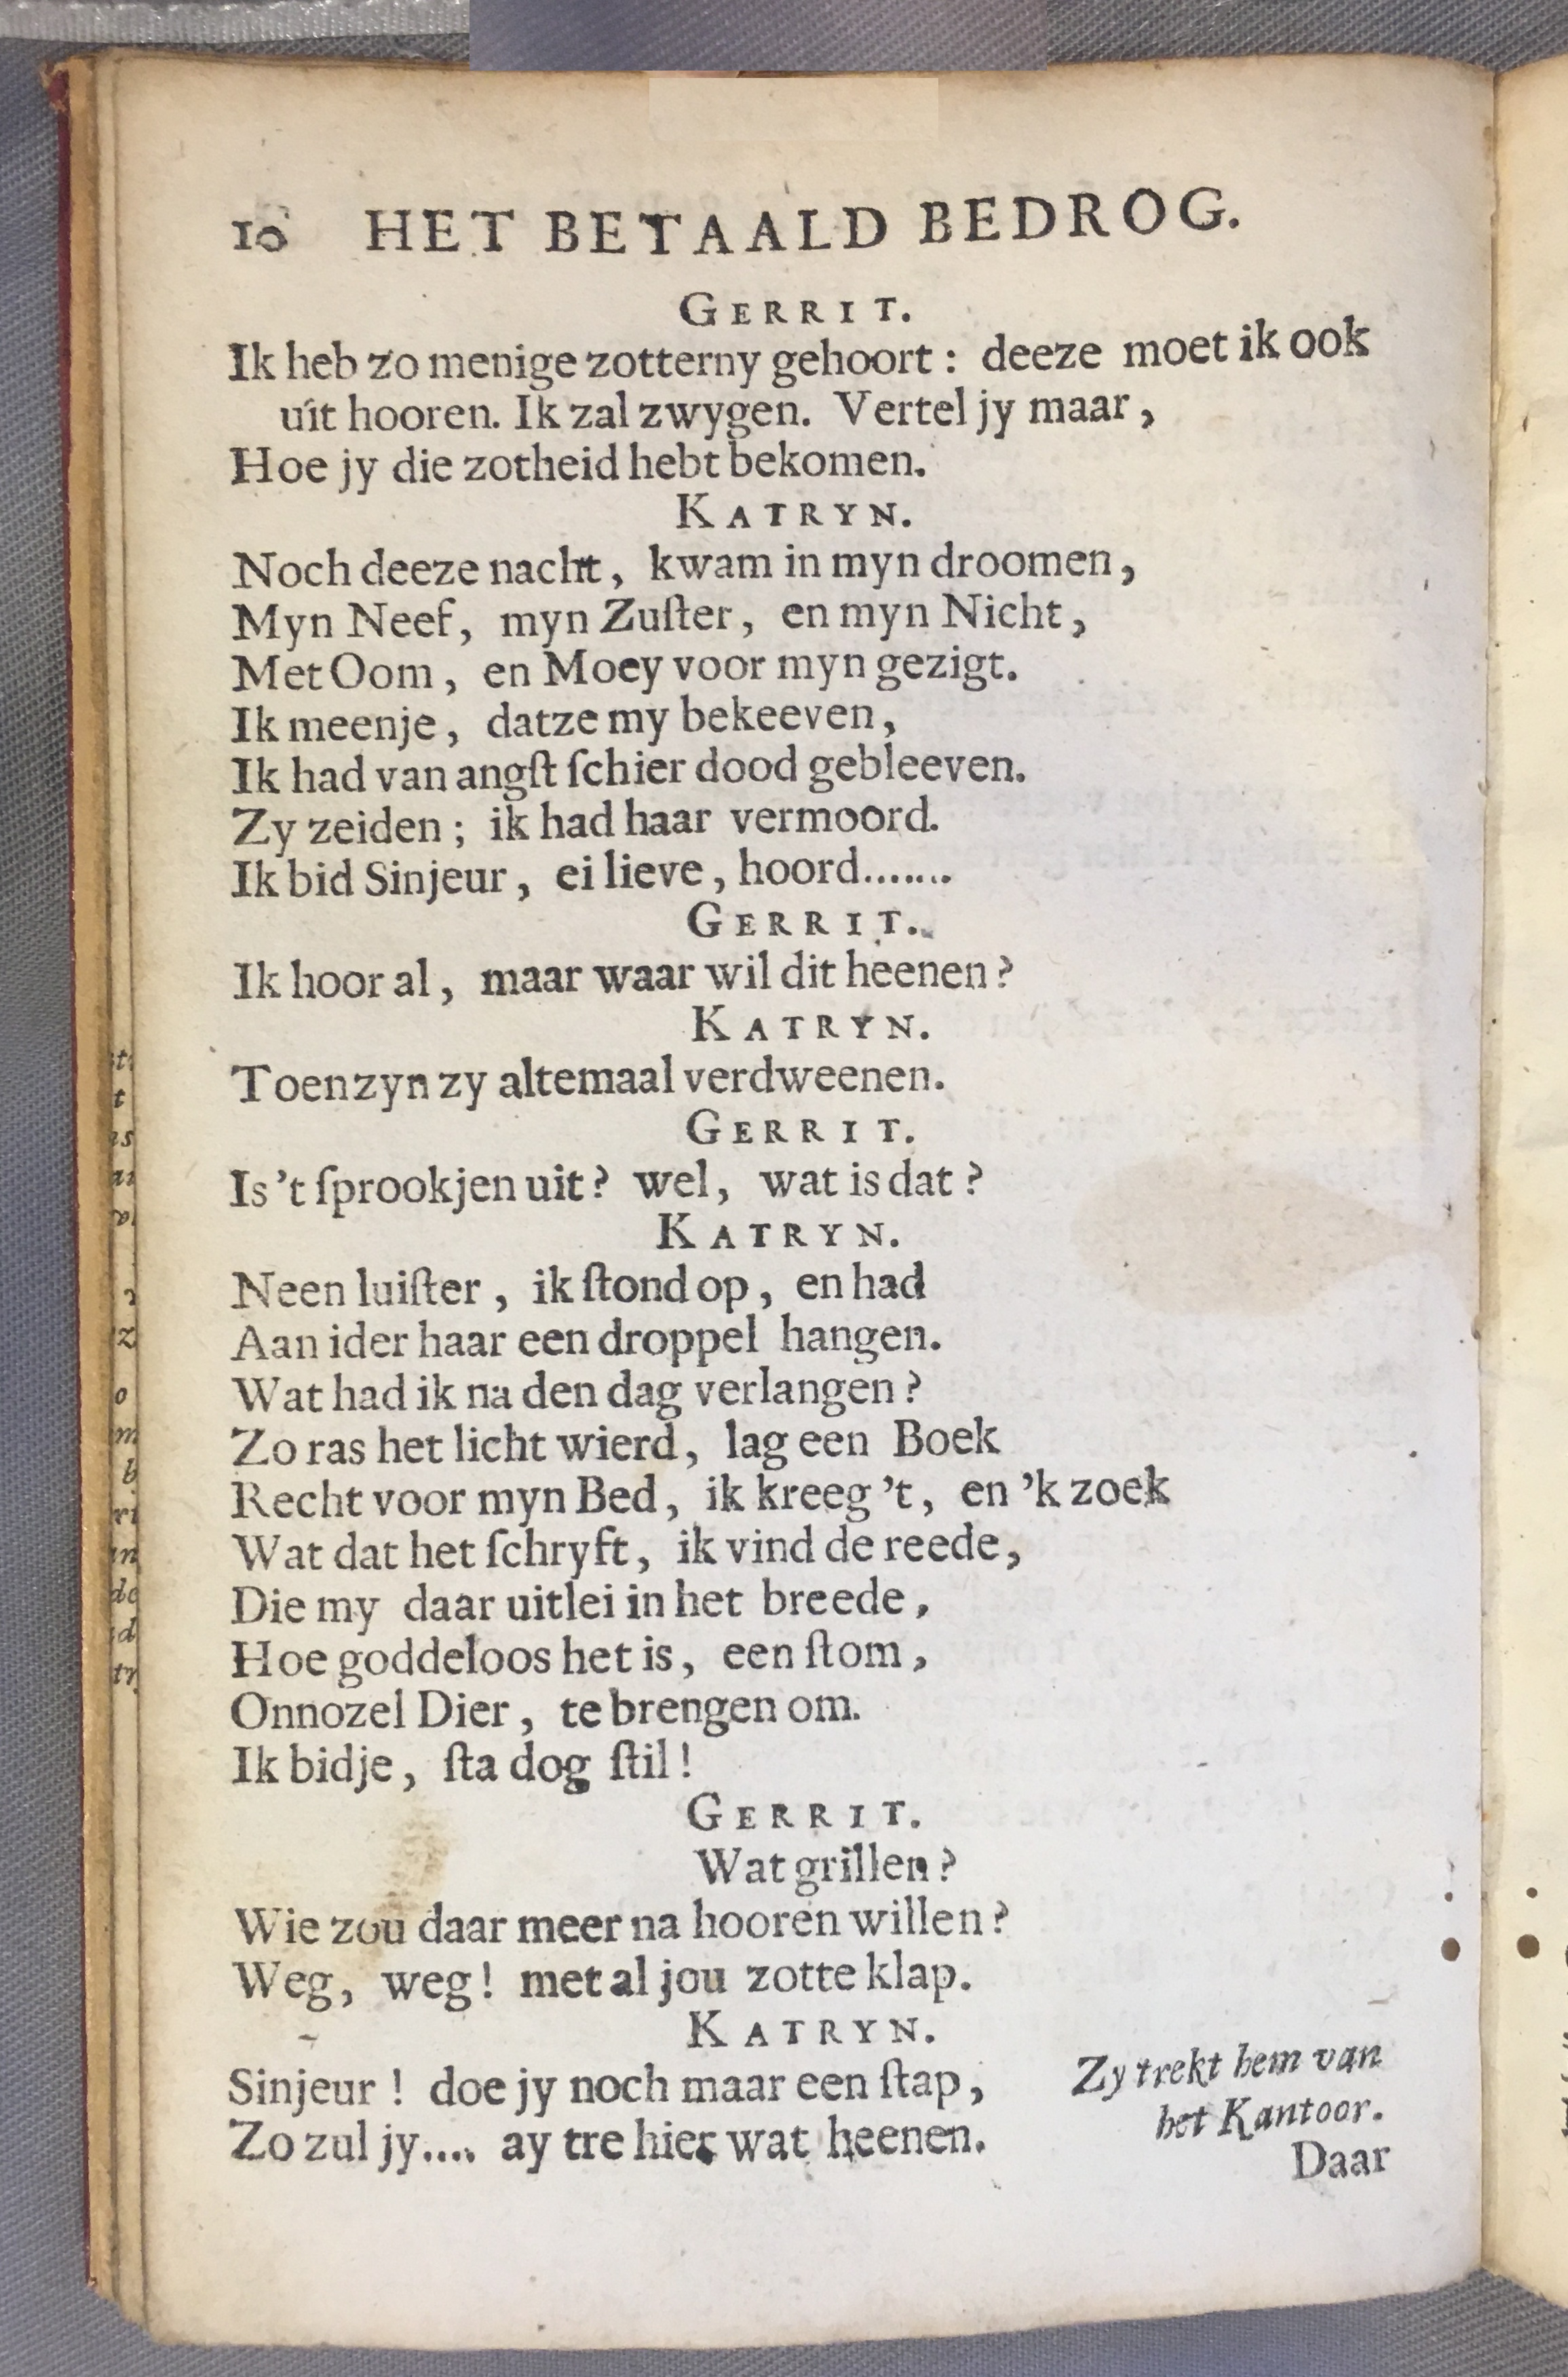 10 HET BETAALD BEDROG.
GERRIT.
Ik heb zo menige zotterny gehoort: deeze moet ik ook
uit hooren. Ik zal zwygen. Vertel jy maar,
Hoe jy die zotheid hebt bekomen.
KATRYN.
Noch deeze nacht, kwam in myn droomen,
Myn Neef, myn Zuſter, en myn Nicht,
Met Oom, en Moey voor myn gezigt.
Ik meenje, datze my bekeeven,
Ik had van angſt ſchier dood gebleeven.
Zy zeiden; ik had haar vermoord.
Ik bid Sinjeur, ei lieve, hoord.......
GERRIT.
Ik hoor al, maar waar wil dit heenen?
KATRYN.
Toen zyn zy altemaal verdweenen.
GERRIT.
Is 't ſprookjen uit? wel, wat is dat?
KATRYN.
Neen luiſter, ik ſtond op, en had
Aan ider haar een droppel hangen.
Wat had ik na den dag verlangen?
Zo ras het licht wierd, lag een Boek
Recht voor myn Bed, ik kreeg 't, en 'k zoek
Wat dat het ſchryft, ik vind de reede,
Die my daar uitlei in het breede,
Hoe goddeloos het is, een ſtom,
Onnozel Dier, te brengen om.
Ik bidje, ſta dog ſtil!
GERRIT.
Wat grillen?
Wie zou daar meer na hooren willen?
Weg, weg! met al jou zotte klap.
KATRYN.
Sinjeur! doe jy noch maar een ſtap,
Zo zul jy.... ay tre hier wat heenen.
Zy trekt hem van
het Kantoor.
Daar